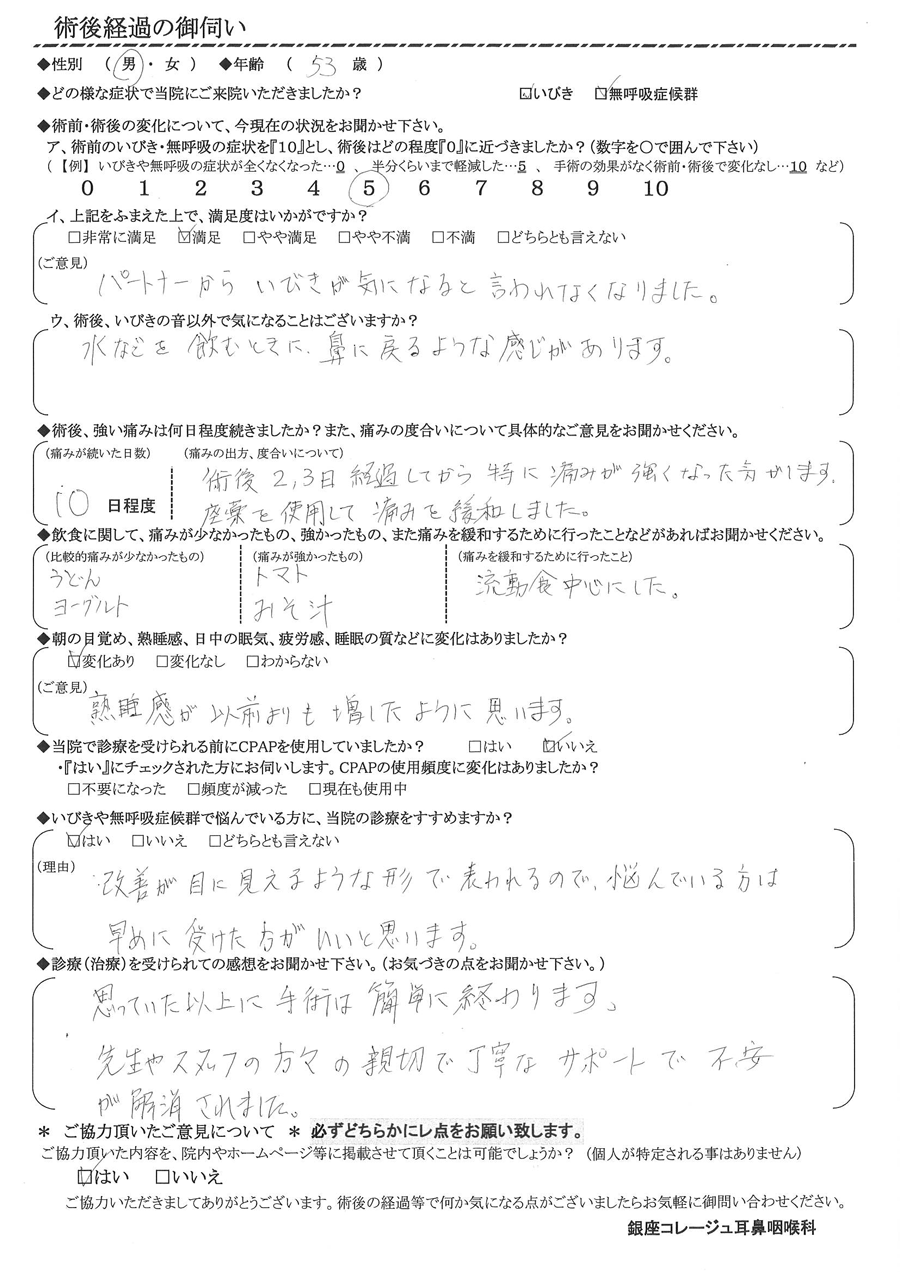 術後経過の御伺い
◆性別 （ 男 ・ 女 ） ◆年齢 （ 53 歳 ）
◆どの様な症状で当院にご来院いただきましたか？ ☑いびき ☑無呼吸症候群
◆術前・術後の変化について、今現在の状況をお聞かせ下さい。
ア、術前のいびき・無呼吸の症状を『10』とし、術後はどの程度『0』に近づきましたか？（数字を〇で囲んで下さい）
（【例】 いびきや無呼吸の症状が全くなくなった…0 、 半分くらいまで軽減した…5 、 手術の効果がなく術前・術後で変化なし…10 など）
0 1 2 3 4 5 6 7 8 9 10
イ、上記をふまえた上で、満足度はいかがですか？
□非常に満足 ☑満足 □やや満足 □やや不満 □不満 □どちらとも言えない
（ご意見）
パートナーから いびきが気になると言われなくなりました。
ウ、術後、いびきの音以外で気になることはございますか？
水などを飲むときに、鼻に戻るような感じがあります。
◆術後、強い痛みは何日程度続きましたか？また、痛みの度合いについて具体的なご意見をお聞かせください。
（痛みが続いた日数） （痛みの出方、度合いについて）
術後2,3日経過してから特に痛みが強くなった気がします。
10 日程度
座薬を使用して痛みを緩和しました。
◆飲食に関して、痛みが少なかったもの、強かったもの、また痛みを緩和するために行ったことなどがあればお聞かせください。
（比較的痛みが少なかったもの） （痛みが強かったもの） （痛みを緩和するために行ったこと）
うどん トマト 流動食中心にした。
ヨーグルト おそ汁
◆朝の目覚め、熟睡感、日中の眠気、疲労感、睡眠の質などに変化はありましたか？
☑変化あり □変化なし □わからない
（ご意見）
熟睡感が以前よりも増したように思います。
◆当院で診療を受けられる前にCPAPを使用していましたか？ □はい ☑いいえ
・『はい』にチェックされた方にお伺いします。CPAPの使用頻度に変化はありましたか？
□不要になった □頻度が減った □現在も使用中
◆いびきや無呼吸症候群で悩んでいる方に、当院の診療をすすめますか？
☑はい □いいえ □どちらとも言えない
（理由）
改善が目に見えるような形で表われるので、悩んでいる方は
早めに受けた方がいいと思います。
◆診療（治療）を受けられての感想をお聞かせ下さい。（お気づきの点をお聞かせ下さい。）
思っていた以上に手術は簡単に終わります。
先生やスタッフの方々の親切で丁寧なサポートで不安
が解消されました。
＊ ご協力頂いたご意見について ＊ 必ずどちらかにレ点をお願い致します。
ご協力頂いた内容を、院内やホームページ等に掲載させて頂くことは可能でしょうか？ （個人が特定される事はありません）
☑はい □いいえ
ご協力いただきましてありがとうございます。術後の経過等で何か気になる点がございましたらお気軽に御問い合わせください。
銀座コレージュ耳鼻咽喉科